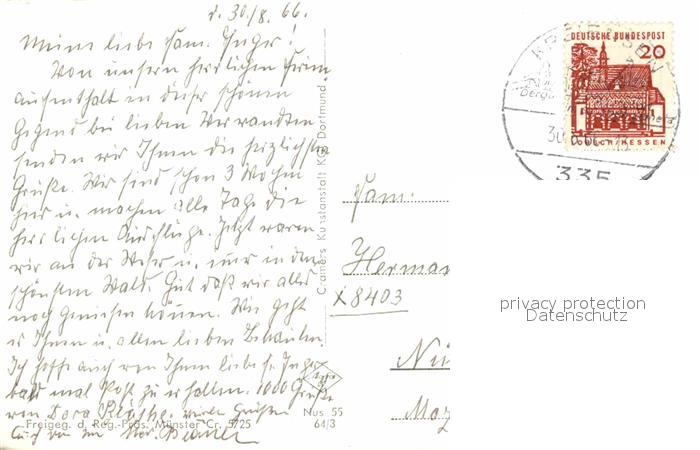 d. 30./8. 66.
Meine liebe Fam. Unger!
Von unserm herrlichen Ferien
aufenthalt in dieser schönen
Gegend bei lieben Verwandten
senden wir Ihnen die herzlichsten
Grüße. Wir sind schon 3 Wochen
hier u. machen alle Tage die
herrlichen Ausflüge. Jetzt waren
wir an der Weser u. nur in dem
schönsten Wald. Gut daß wir alles
noch genießen können. Wie geht
es Ihnen u. allen lieben Bekannten
Ich hoffe auch von Ihnen liebe Fr. Unger
bald mal Post zu erhalten. 1000 Grüße
von Dora viele Grüße
Auch von
Freigeg. d. Reg.-Präs. Münster Cr. 5725
Nus 55
64/3
Cramers Kunstanstalt KG, Dortmund
DEUTSCHE BUNDESPOST
20
LORSCH/HESSEN
335
Fam.
Herma
x 8403
privacy protection
Datenschutz